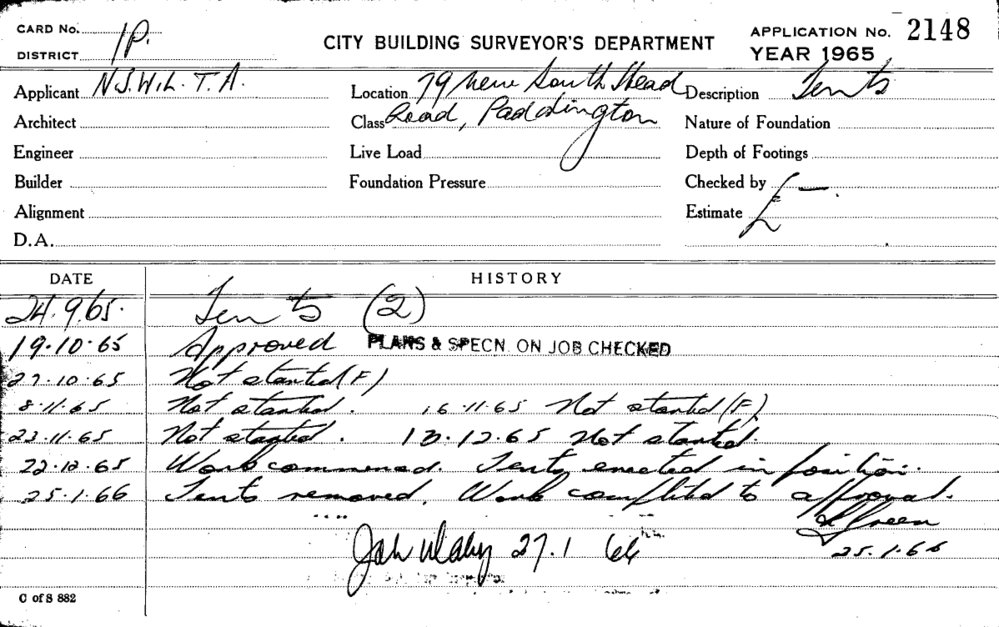 CARD No. 1P. CITY BUILDING SURVEYOR'S DEPARTMENT APPLICATION No. 2148
DISTRICT YEAR 1965
Applicant N.S.W.L.T.A. Location 79 New South Head Description Tents
Architect Class Road, Paddington Nature of Foundation
Engineer Live Load Depth of Footings
Builder Foundation Pressure Checked by
Alignment Estimate £ —
D.A.
DATE HISTORY
24.9.65. Tents (2)
19.10.65 Approved PLANS & SPECN. ON JOB CHECKED
27.10.65 Not started (F)
8.11.65 Not started. 16.11.65 Not started (F)
23.11.65 Not started. 13.12.65 Not started.
22.12.65 Work commenced. Tents erected in position.
25.1.66 Tents removed. Work completed to approval.
25.1.66
27.1 66
C of S 882